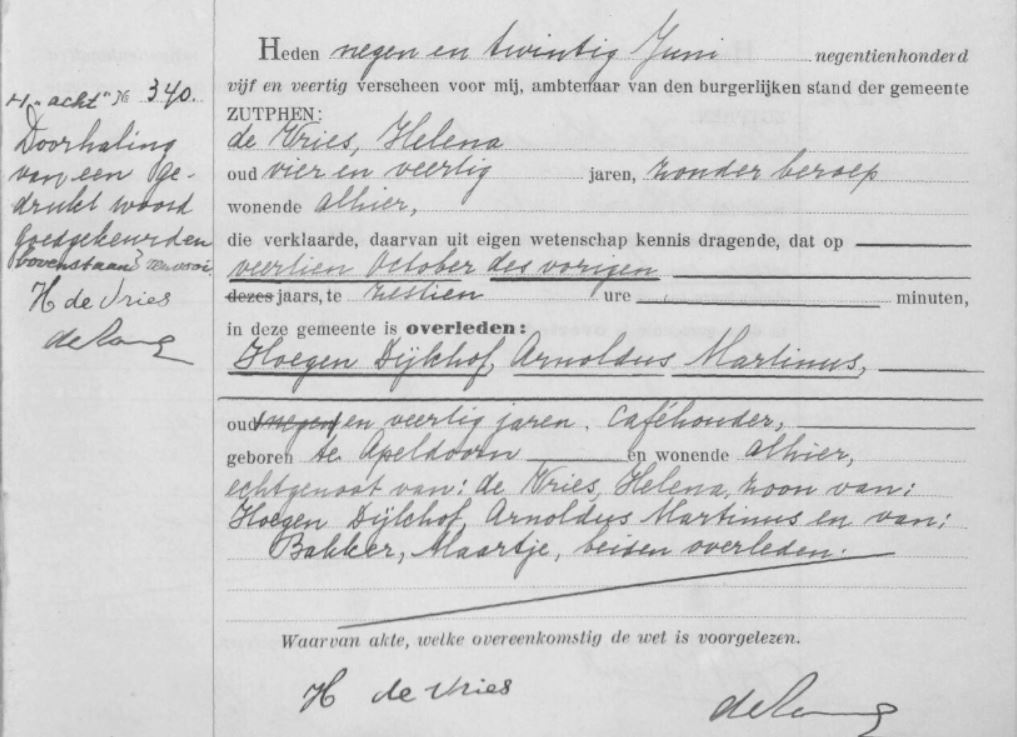 H „acht" № 340.
Doorhaling
van een ge-
drukt woord
goedgekeurd en
bovenstaand renvooi.
H de Vries
de Lang
Heden negen en twintig Juni negentienhonderd
vijf en veertig verscheen voor mij, ambtenaar van den burgerlijken stand der gemeente
ZUTPHEN:
de Vries, Helena
oud vier en veertig jaren, zonder beroep
wonende alhier,
die verklaarde, daarvan uit eigen wetenschap kennis dragende, dat op
veertien October des vorigen
dezes jaars, te zestien ure minuten,
in deze gemeente is overleden:
Hoegen Dijkhof, Arnoldus Martinus,
oud negen en veertig jaren, caféhouder,
geboren te Apeldoorn en wonende alhier,
echtgenoot van: de Vries, Helena, zoon van:
Hoegen Dijkhof, Arnoldus Martinus en van:
Bakker, Maartje, beiden overleden.
Waarvan akte, welke overeenkomstig de wet is voorgelezen.
H de Vries
de Lang